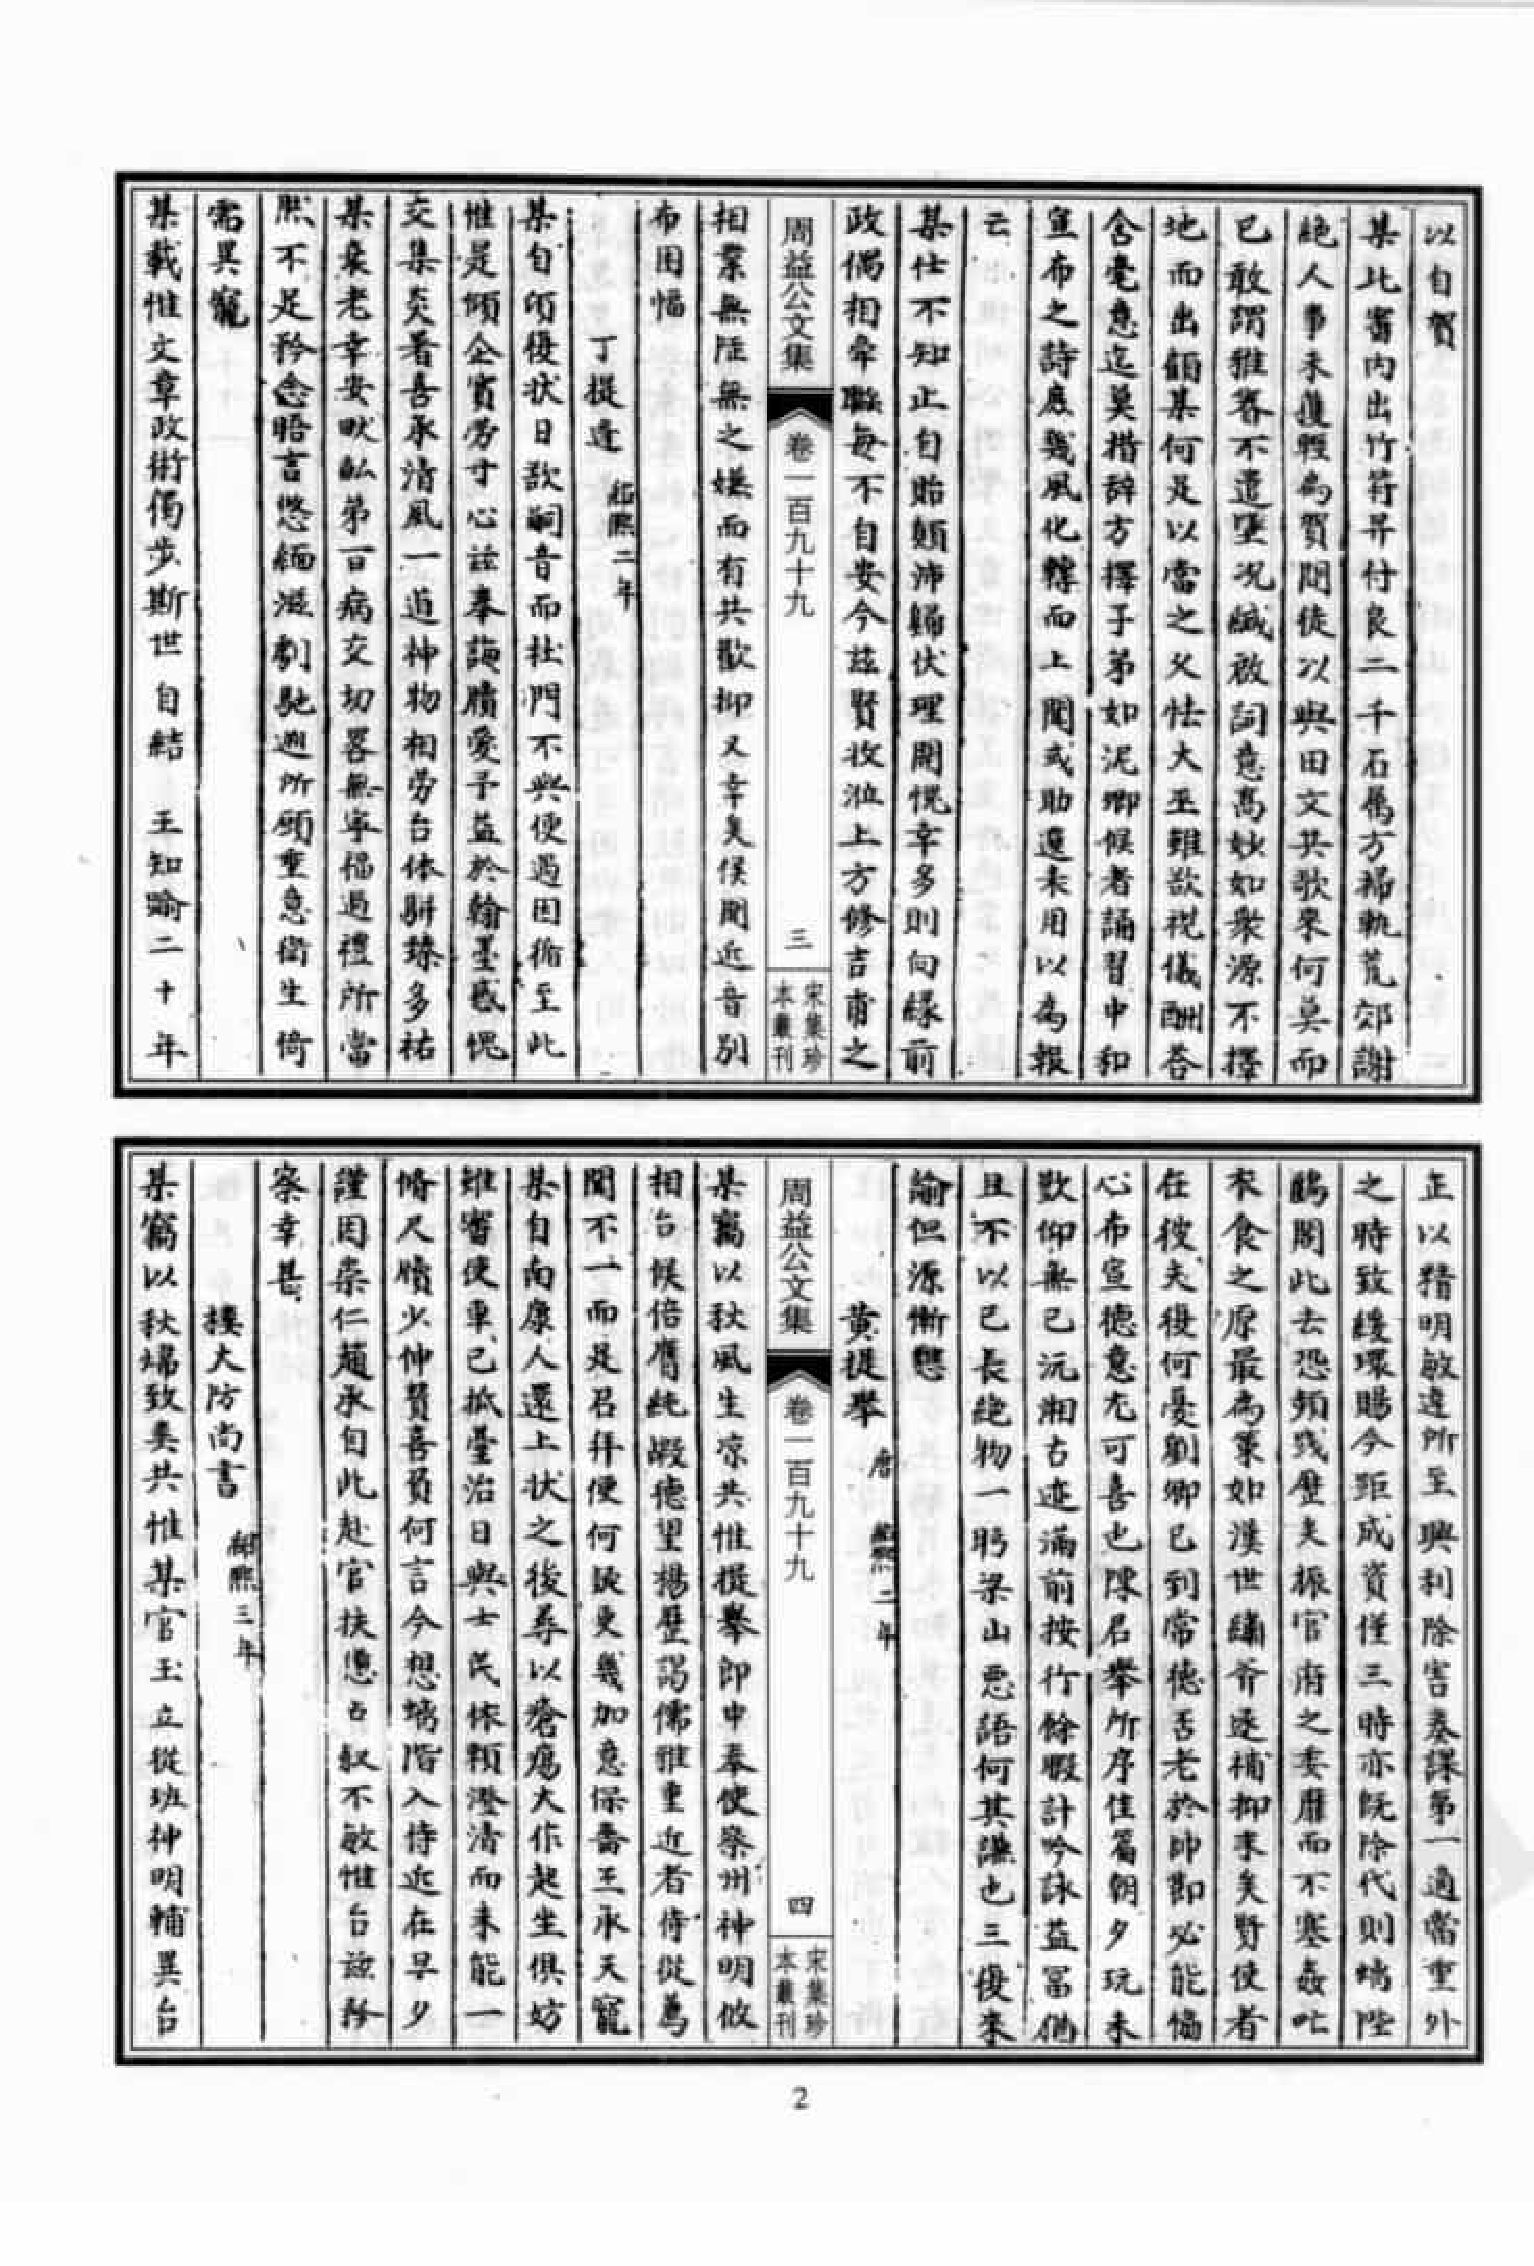 以自賀
某比審內出竹符畀付良二千石属方掃軌荒郊謝
絶人事未獲輕為賀問徒以與田文共歌來何莫而
已敢謂雅眷不遺墜况緘啟詞意髙妙如衆源不擇
地而出顧某何足以當之父怯大巫難欲視儀酬荅
含毫意迄莫措辞方擇子弟如泥卿候者誦習中和
宣布之詩庶幾風化轄而上聞或助選表用以為報
云
某仕不知止自貽顛沛歸伏理開悅幸多則向縁前
政偶相牵聮每不自安今兹賢牧涖上方修吉甫之
周益公文集
卷一百九十九
三
宋集珍
本叢刊
相業無陞無之嫌而有共歡抑又幸矣侯聞近音别
布困愊
丁提逵 紹熙二年
某自頃復状日欲嗣音而杜門不與便遇因循至此
惟是傾企實勞寸心兹奉誨牘愛予益於翰墨感愧
交集炎暑喜承清風一道神物相勞台体駢臻多祐
某衰老幸安畎畝第百病交切畧無寧福過禮所當
然不足矜念晤言悠緬滋劇馳遡所願重意衛生倚
需異寵
某載惟文章政術獨步斯世自結 王知踰二十年
正以精明敏達所至興利除害奏課第一適當重外
之時致緩環賜今距成資僅三時亦既除代則端陛
鵷閣此去恐頻践歷矣振官府之委靡而不塞姦吐
衣食之原最為策如漢世繡斧逐補抑末矣賢使者
在彼夫復何憂劉卿已到常德否老於帥閫必能偹
心布宣德意尤可喜也陳君舉所序佳篇朝夕玩未
歎仰無已沅湘古迹滿前按行餘暇計吟詠益冨倘
且不以已長絶物一眄梁山悪語何其謙也三復来
諭但源慚戀
黄提舉 唐 紹熙二年
周益公文集
卷一百九十九
四
宋集珍
本叢刊
某竊以秋風生凉共惟提舉郎中奉使察州神明攸
相台候倍膺純嘏德望揚歴謁儒雅重近者侍從薦
聞不一而足召拜便何疑更幾加意保嗇王承天寵
某自向康人還上状之後尋以瘡瘍大作起坐俱妨
雖審使車已抵臺治日與士民依頼澄清而未能一
脩尺牘少伸賛喜負何言今想端階入侍近在早夕
謹因桒仁趙承自此赴官扶憊占叙不敏惟台諒矜
察幸甚
樓大防尚書 紹熙三年
某竊以秋端致奠共惟某官玉立從班神明輔異台